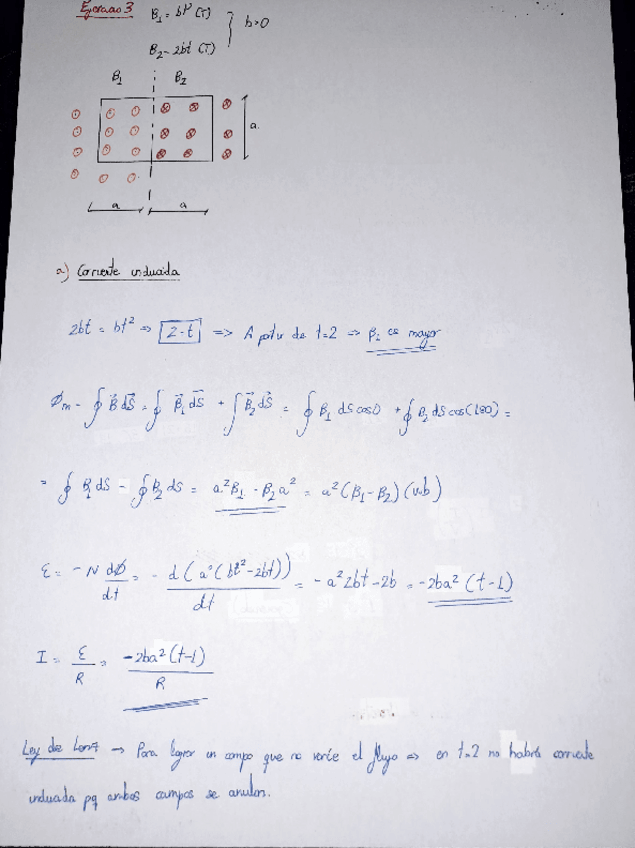 Ejercicio 3
B₁ = bt² (T)
B₂ = 2bt (T)
b>0
B₁ B₂
a
a a
a) Corriente inducida
2bt = bt² => 2=t => A partir de t=2 => B₁ es mayor
Øm = ∮ B⃗ dS⃗ = ∮ B⃗₁ dS⃗ + ∫ B⃗₂ dS⃗ = ∮ B₁ dS cos0 + ∮ B₂ dS cos(180) =
= ∮ B₁ dS - ∮ B₂ dS = a²B₁ - B₂a² = a²(B₁-B₂) (wb)
ε = -N dØ/dt = - d(a²(bt²-2bt))/dt = -a²2bt-2b = -2ba²(t-1)
I = ε/R = -2ba²(t-1)/R
Ley de Lenz → Para lograr un campo que no varíe el flujo => en t=2 no habrá corriente
inducida pq ambos campos se anulan.